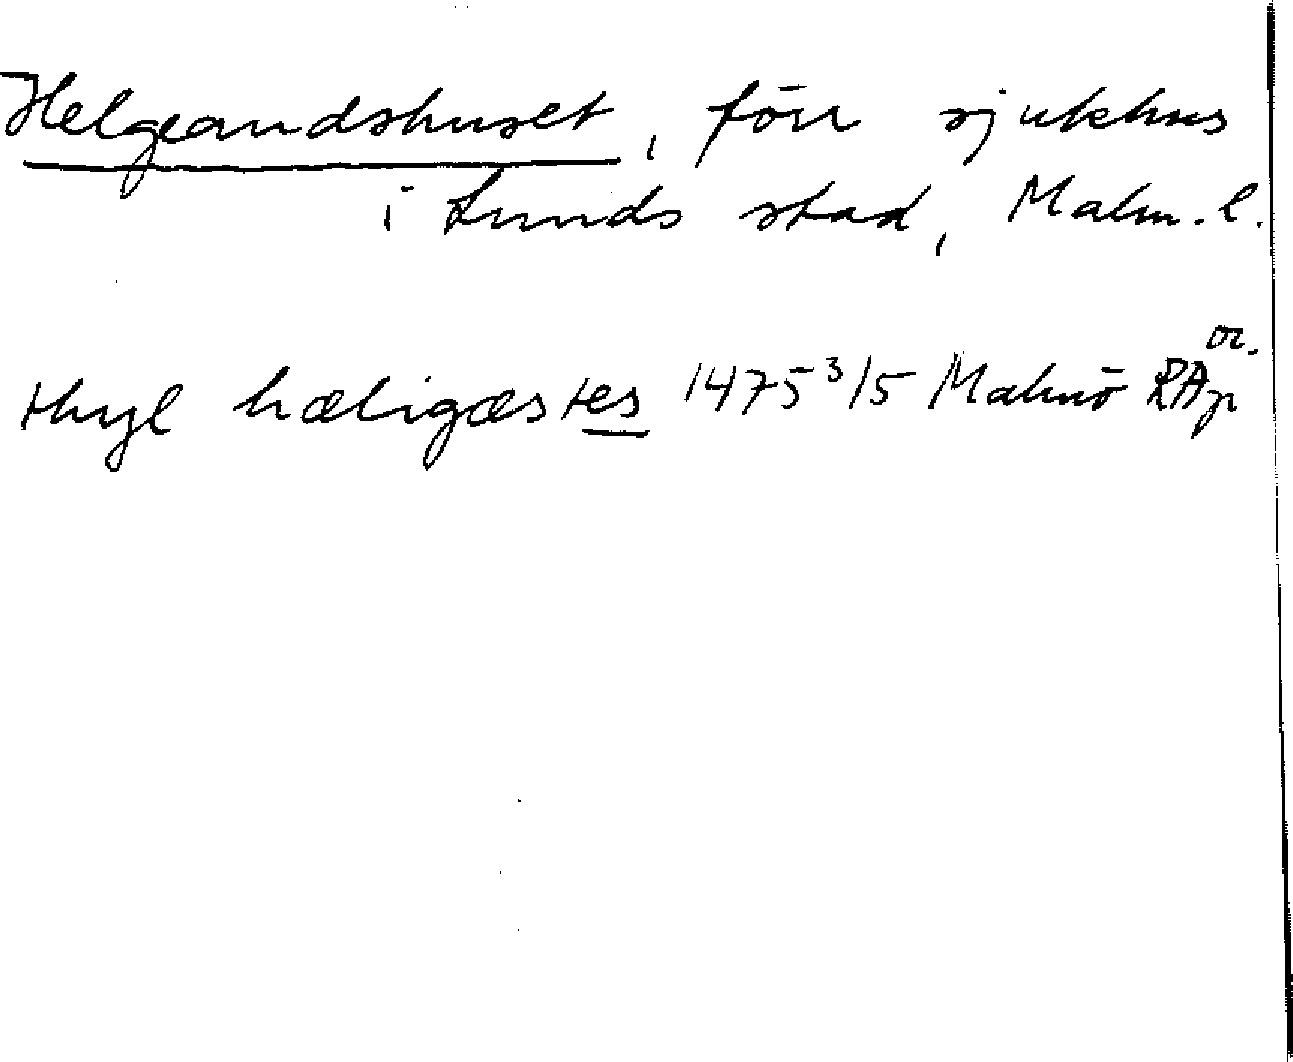 Helgeandshuset, förr sjukhus
i Lunds stad, Malm. l.
thyl hæligæstes 1475 3/5 Malmö RAp or.